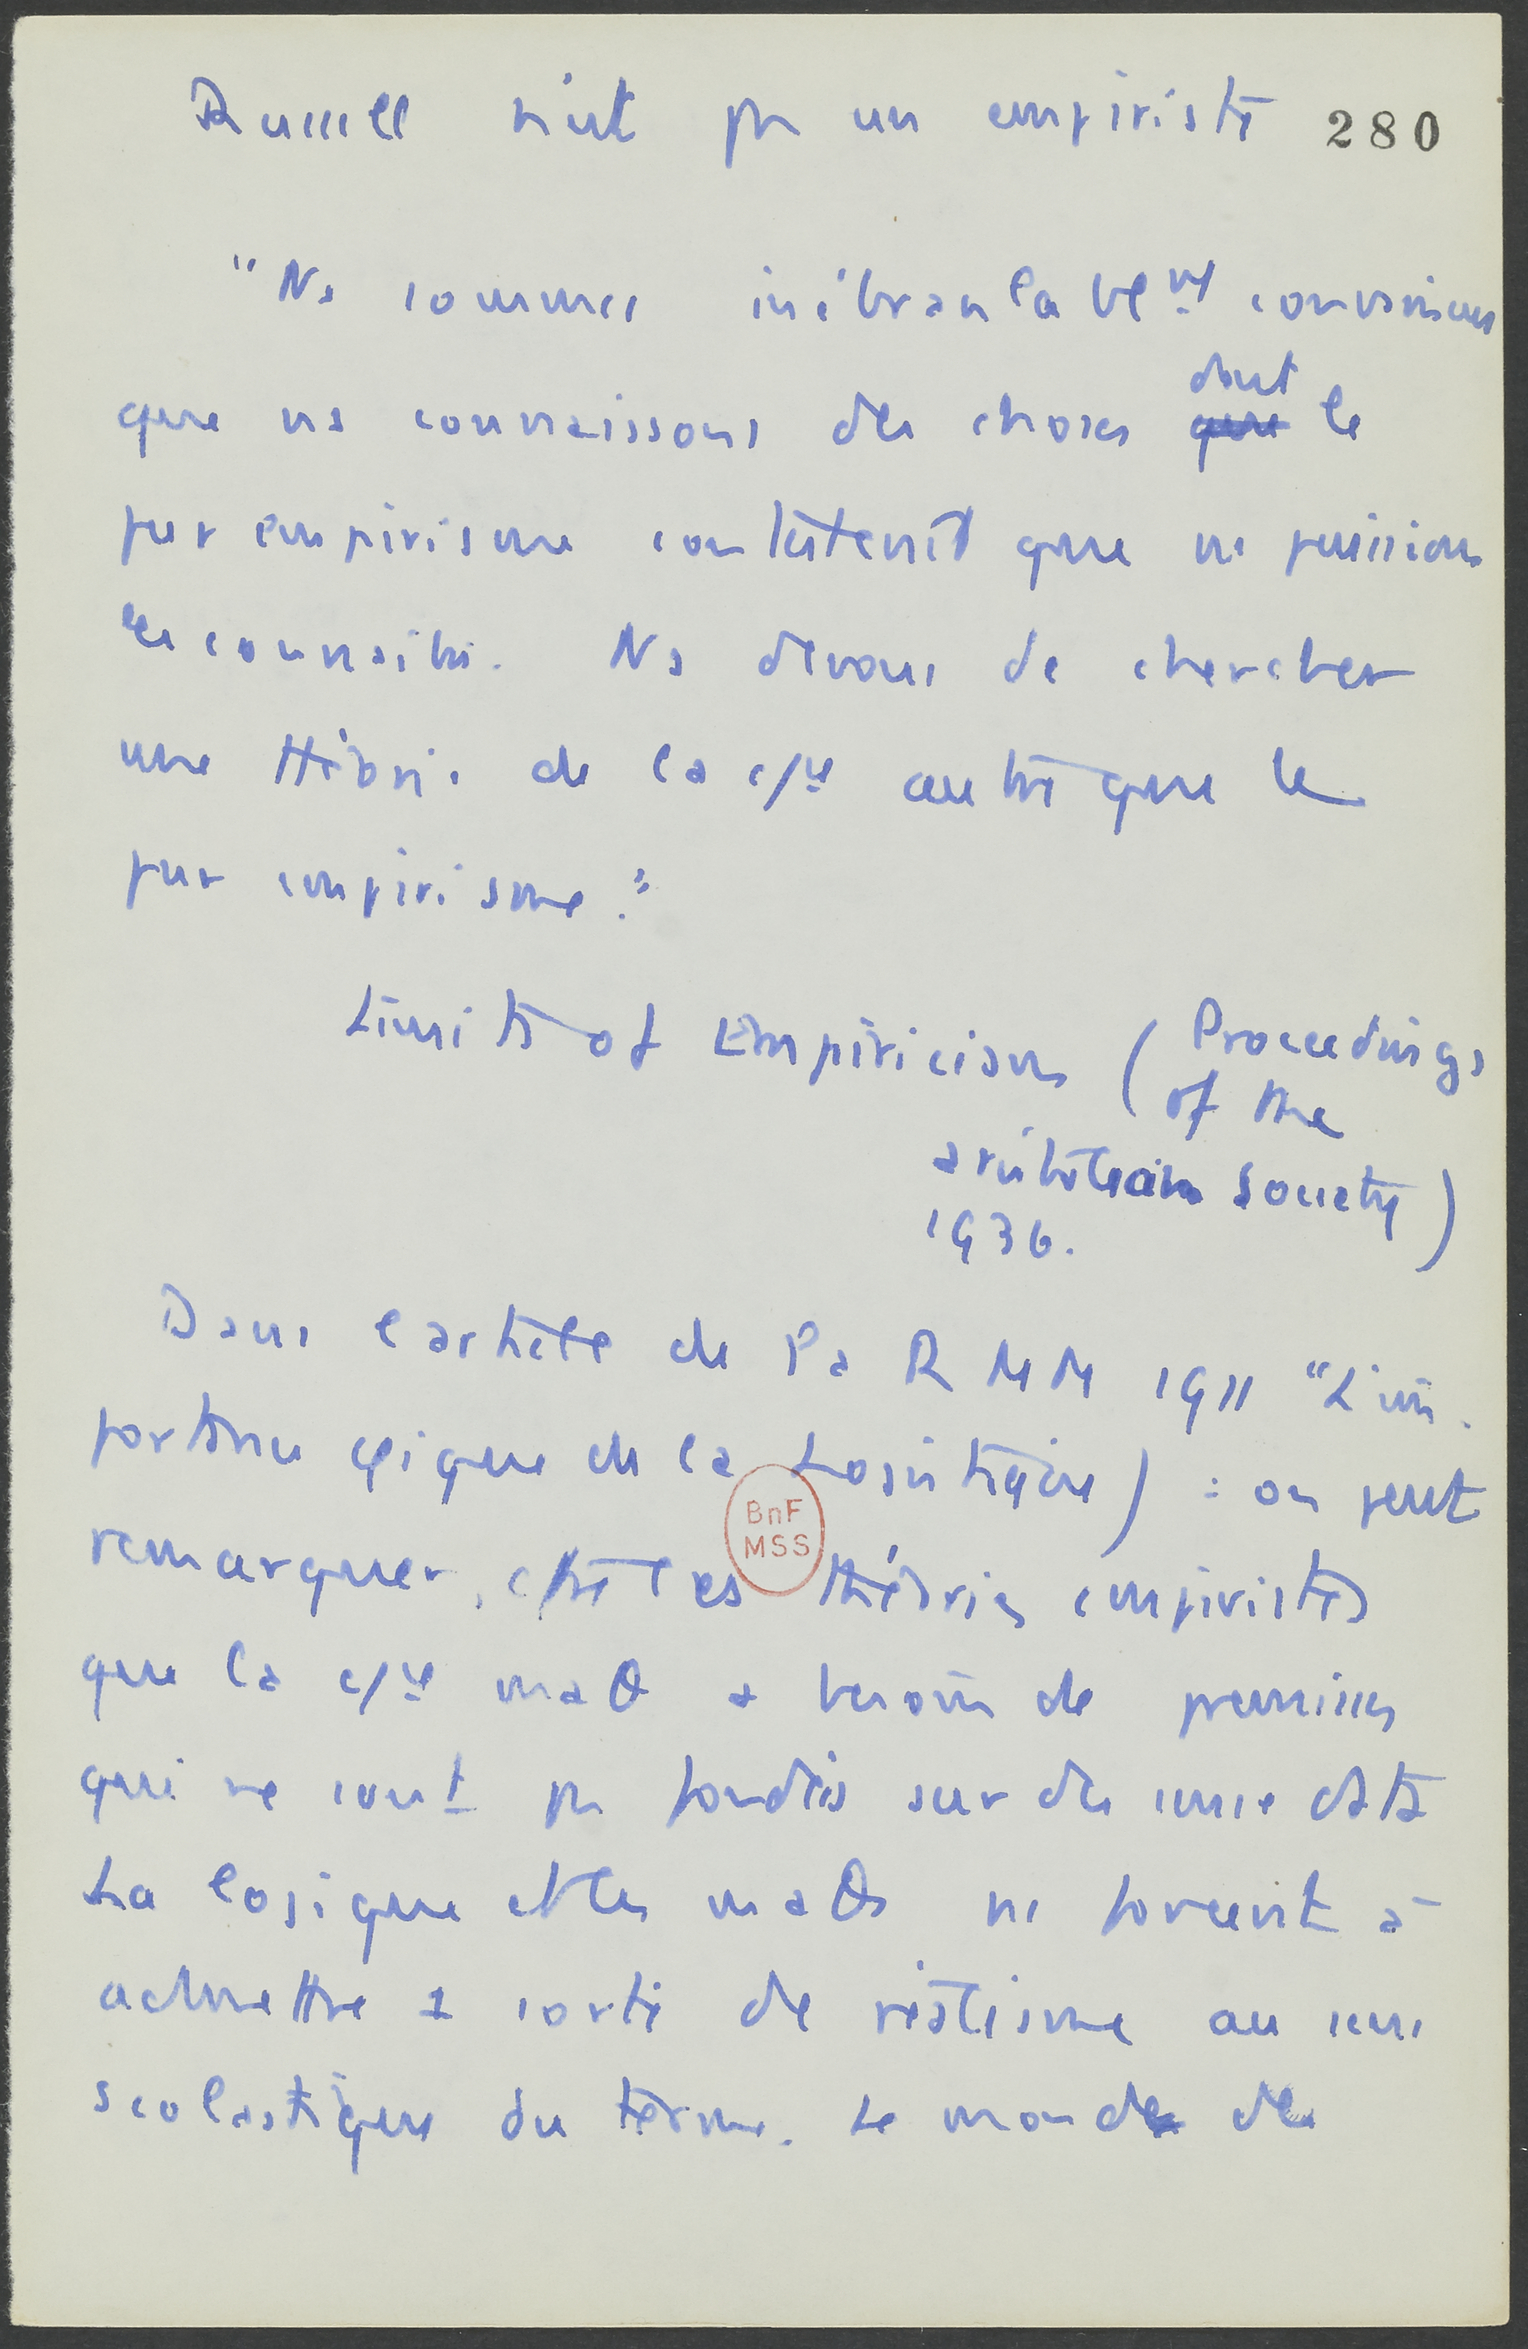 Russell n'est pas un empiriste 280
"Ns sommes inébranlablemt convaincus
que ns connaissons des choses que dont le
pur empirisme contesterait que ns puissions
les connaître. Ns devons dc chercher
une théorie de la c/ce autre que le
pur empirisme."
Limits of Empiricism (Proceedings
of the
aristotelian Society)
1936.
Dans l'article de la RMM 1911 "L'im-
portance φique de la Logistique) : on peut
remarquer, c/tre les théories empiristes
que la c/ce maθ a besoin de prémisses
qui ne sont pas fondées sur des sense data
La logique et les maθs ns forcent à
admettre 1 sorte de réalisme au sens
scolastique du terme. Le monde des
BnF
MSS